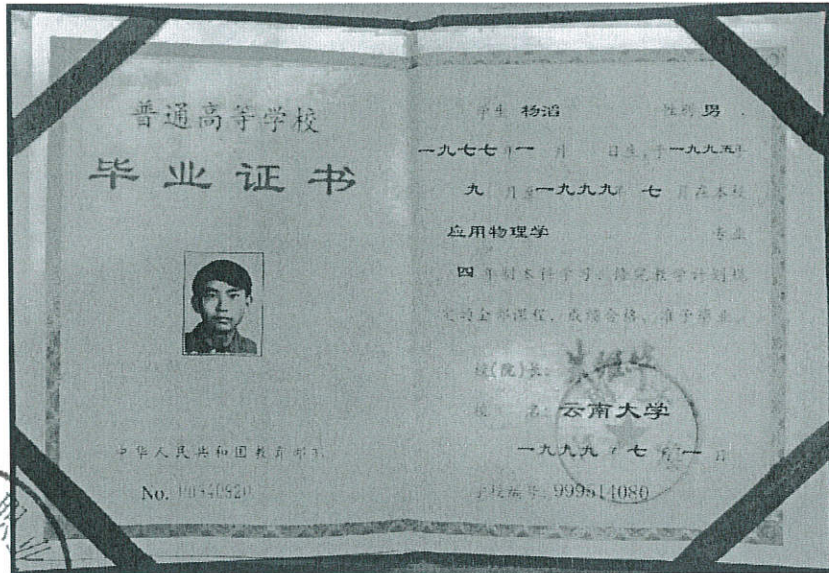 普通高等学校
毕业证书
中华人民共和国教育部
No.
学生 杨滔 性别 男 、
一九七七年一月 日生,于一九九五年
九 月至一九九九年 七 月在本校
应用物理学 专业
四年制本科学习,修完教学计划规
定的全部课程,成绩合格,准予毕业。
校(院)长:
校 名: 云南大学
一九九九年七月一日
学校编号: 999514080
职业